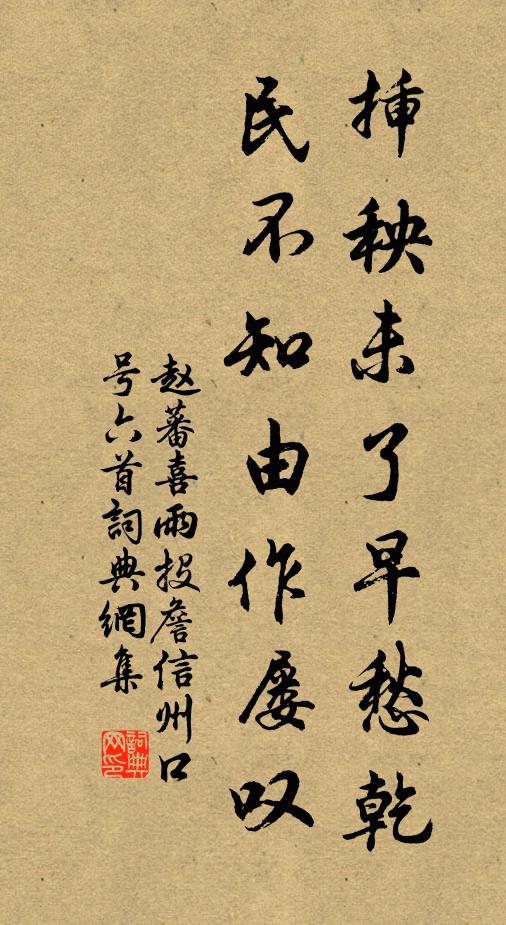 挿秧未了早愁乾
民不知由作屡叹
赵蕃喜雨投詹信州口
号六首詞典網集
詞典網印